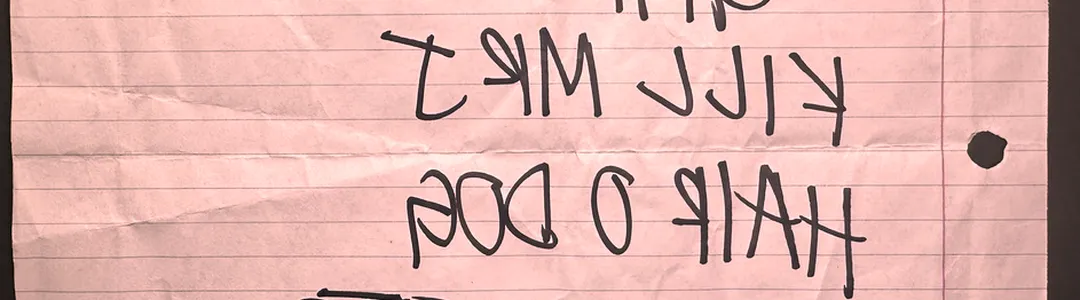 KILL MR T
HAIR O DOG